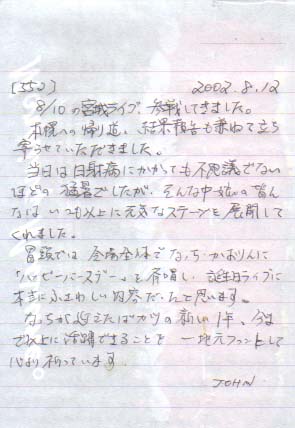 [552] 2002.8.12
8/10の宮城ライブ、参戦してきました。
本院への帰り道、結果報告も兼ねて立ち
寄らせていただきました。
当日は日射病にかかっても不思議でない
ほどの猛暑でしたが、そんな中娘の皆ん
なは いつも以上に元気なステージを展開して
くれました。
冒頭では 会場全体でなっち・かおりんに
「ハッピーバースデー」を斉唱し、誕生日ライブに
本当にふさわしい内容だったと思います。
なっちが迎えたばかりの新しい1年、今ま
で以上に活躍できることを 一地元ファンとして
心より祈っています。
JOHN